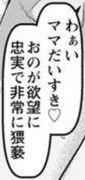 わぁい
ママだいすき♡
おのが欲望に
忠実で非常に猥褻